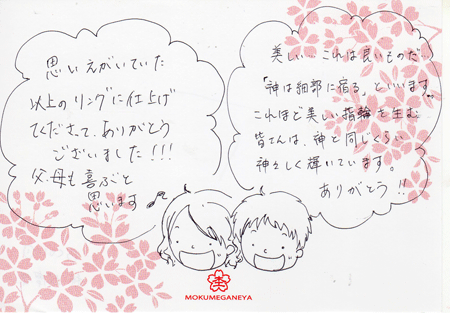 思いえがいていた
以上のリングに仕上げ
てくださって、ありがとう
ございました!!!
父母も喜ぶと
思います♪
美しい… これは良いものだ…
「神は細部に宿る」といいます。
これほど美しい指輪を生む
皆さんは、神と同じくらい
神々しく輝いています。
ありがとう!!
MOKUMEGANEYA